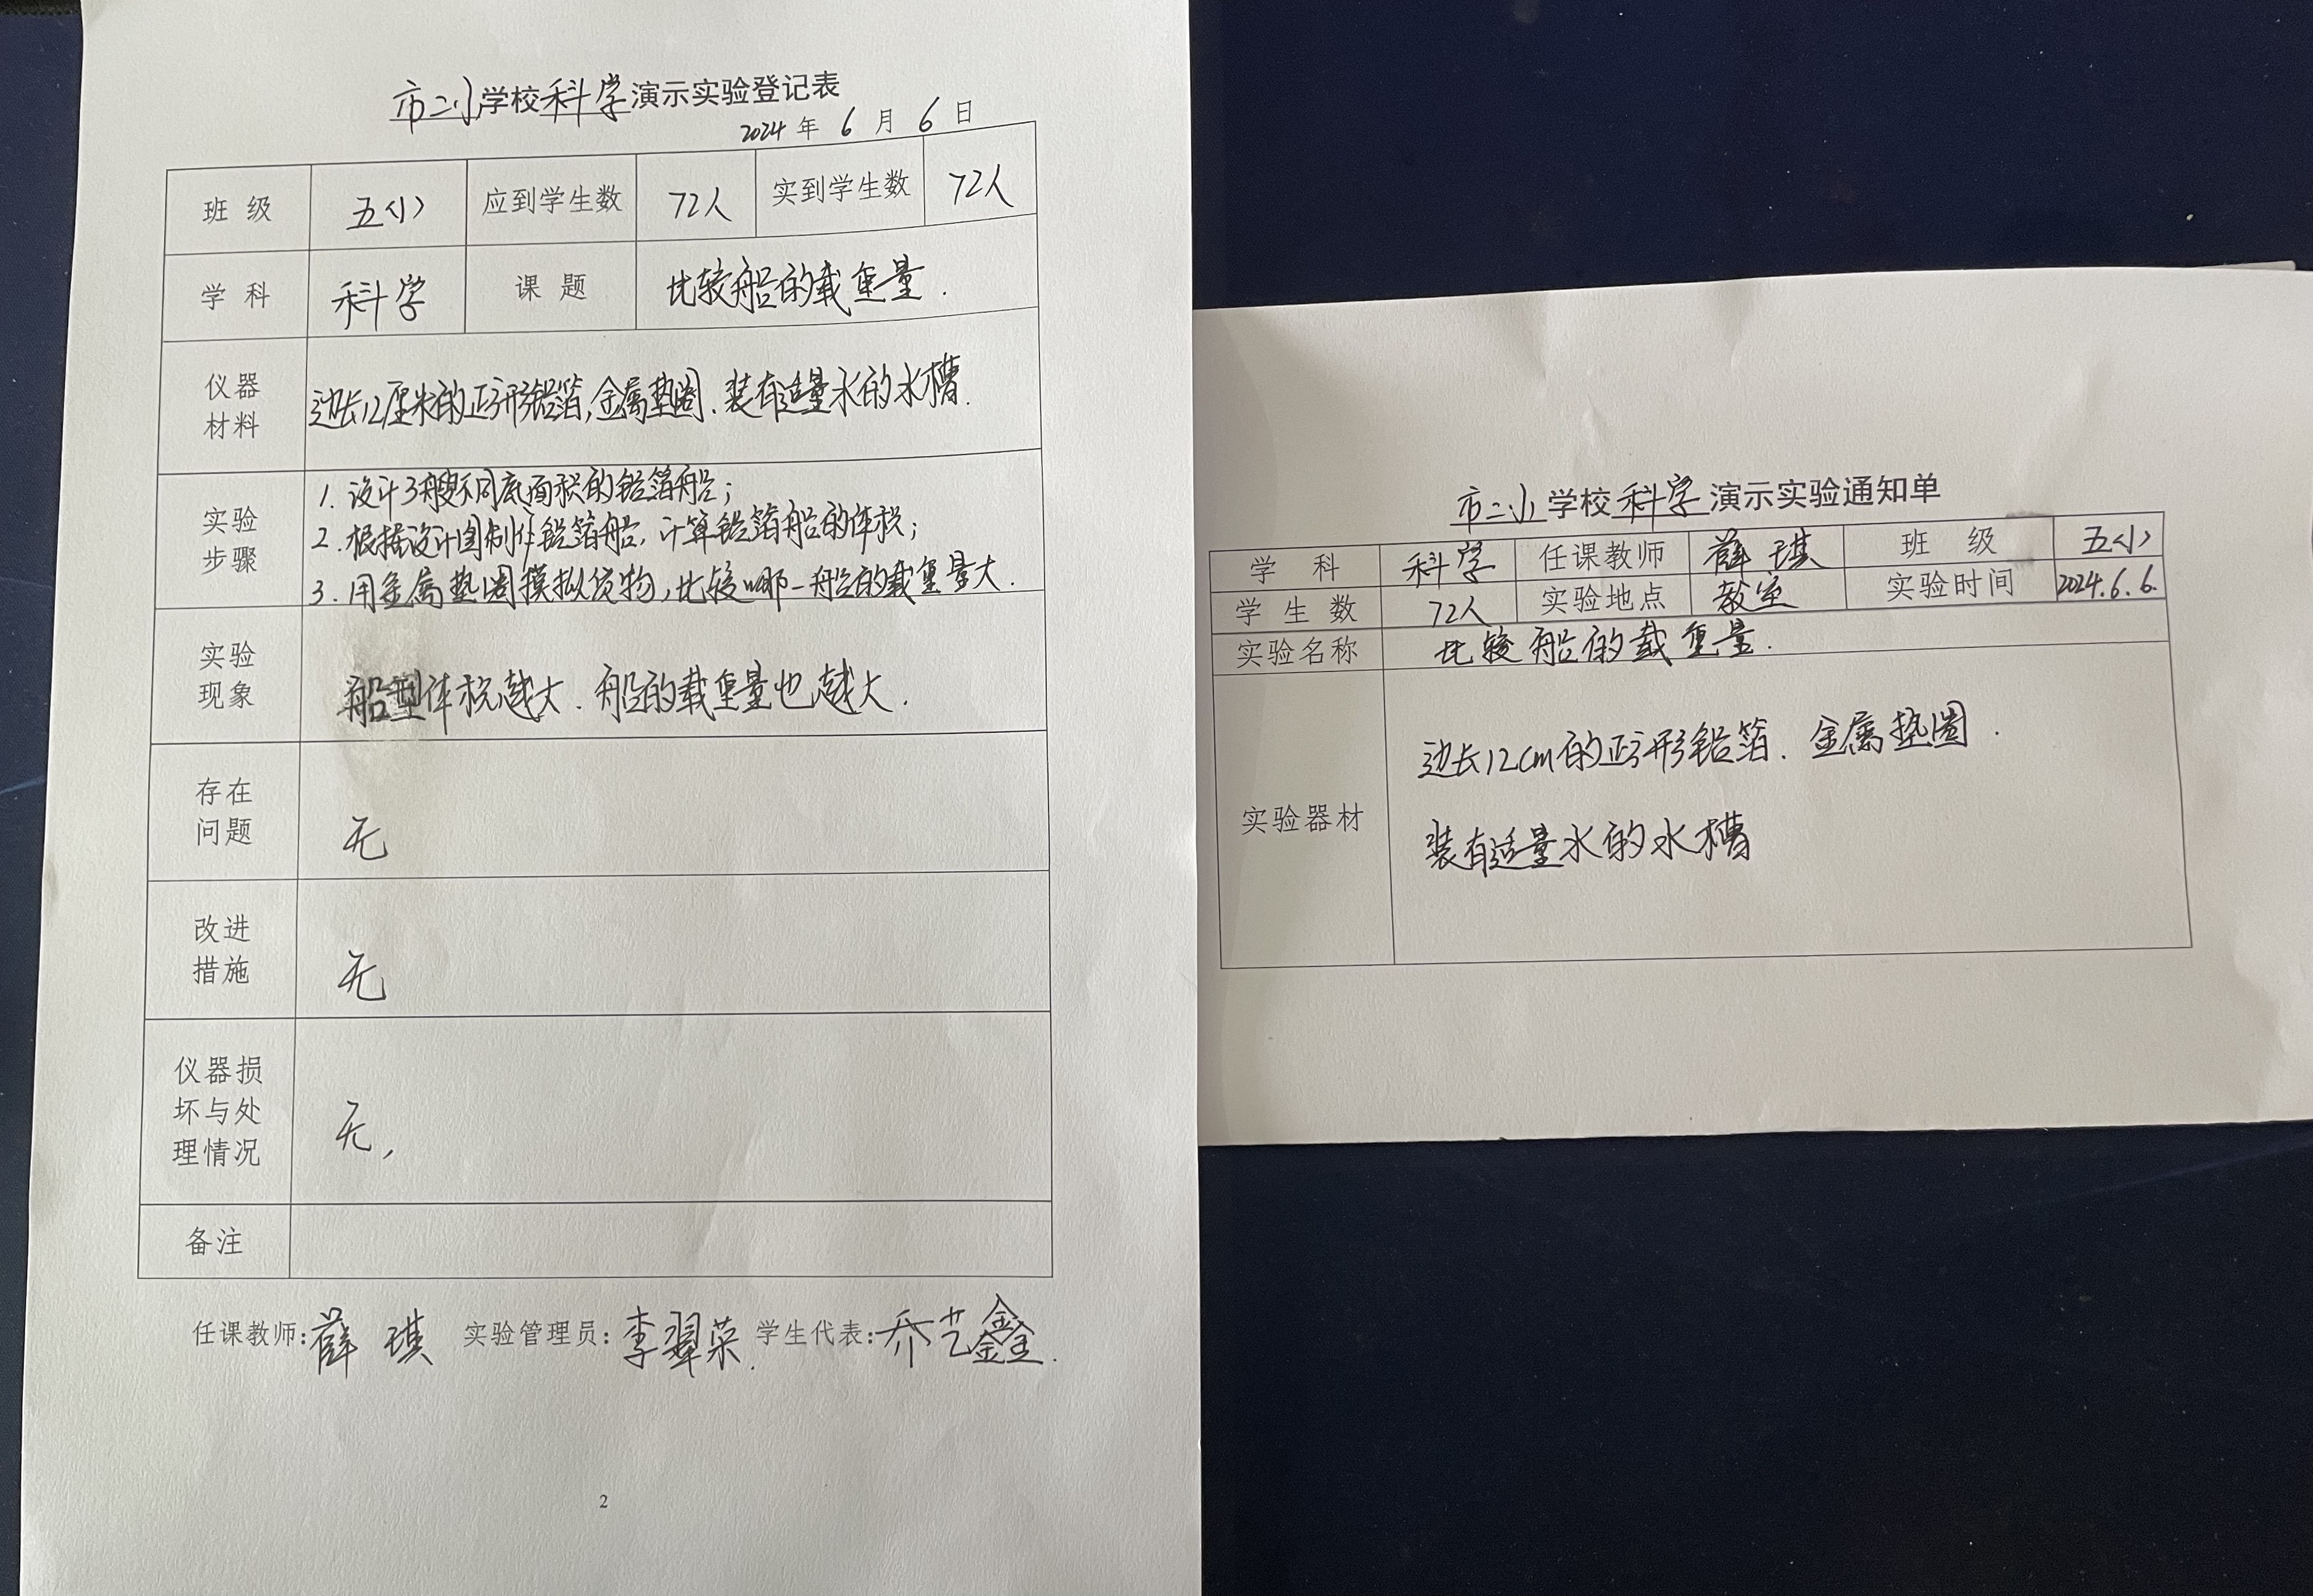 市二小学校科学演示实验登记表
2024年6月6日
班级 五<1> 应到学生数 72人 实到学生数 72人
学科 科学 课题 比较船的载重量.
仪器
材料
边长12厘米的正方形铝箔,金属垫圈.装有适量水的水槽.
实验
步骤
1.设计3艘不同底面积的铝箔船;
2.根据设计图制作铝箔船,计算铝箔船的体积;
3.用金属垫圈摸拟货物,比较哪一船的载重量大.
实验
现象
船型体积越大.船的载重量也越大.
存在
问题
无
改进
措施
无
仪器损
坏与处
理情况
无,
备注
任课教师:薛琪 实验管理员:李翠荣. 学生代表:乔艺鑫.
2
市二小学校科学演示实验通知单
学科 科学 任课教师 薛琪 班级 五<1>
学生数 72人 实验地点 教室 实验时间 2024.6.6.
实验名称 比较船的载重量.
实验器材
边长12cm的正方形铝箔.金属垫圈.
装有适量水的水槽